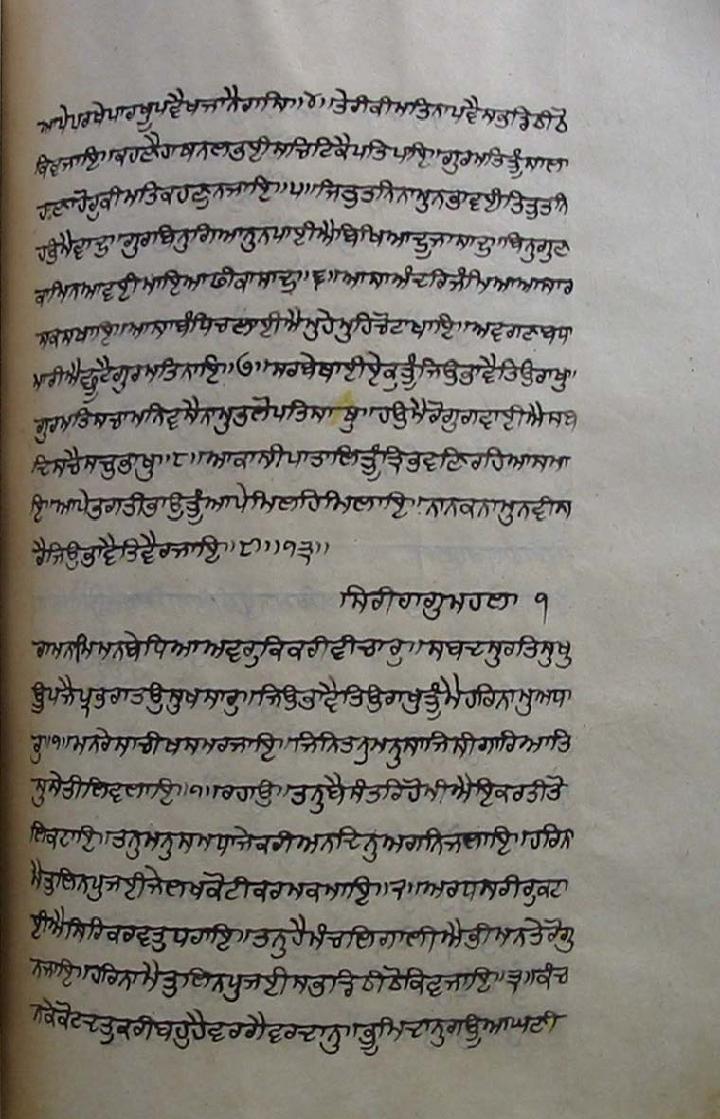 ਆਪੇਪਰਖੇਪਾਰਖੂਪਵੈਖਜਾਨੈਰਾਸਿ॥੪॥ਤੇਰੀਕੀਮਤਿਨਾਪਵੈਸਭਡਿਠੀਠੋ
ਕਿਵਜਾਇ॥ਕਹਣੈਹਾਥਨਲਭਈਸਚਿਟਿਕੈਪਤਿਪਾਇ॥ਗੁਰਮਤਿਤੂੰਸਾਲਾ
ਹਣਾਹੋਰੁਕੀਮਤਿਕਹਣੁਨਜਾਇ॥੫॥ਜਿਤੁਤਨਿਨਾਮੁਨਭਾਵਈਤਿਤੁਤਨਿ
ਹਉਮੈਵਾਦੁ॥ਗੁਰਬਿਨੁਗਿਆਨੁਨਪਾਈਐਬਿਖਿਆਦੂਜਾਸਾਦੁ॥ਬਿਨੁਗੁਣ
ਕਾਮਿਨਆਵਈਮਾਇਆਫੀਕਾਸਾਦੁ॥੬॥ਆਸਾਅੰਦਰਿਜੰਮਿਆਆਸਾਰ
ਸਕਸਖਾਇ॥ਆਸਾਬੰਧਿਚਲਾਈਐਮੁਹੇਮੁਹਿਚੋਟਾਖਾਇ॥ਅਵਗਣਬਧਾ
ਮਾਰੀਐਛੂਟੈਗੁਰਮਤਿਨਾਇ॥੭॥ਸਰਬੇਥਾਈਏਕੁਤੂੰਜਿਉਭਾਵੈਤਿਉਰਾਖੁ॥
ਗੁਰਮਤਿਸਚਾਮਨਿਵਸੈਨਾਮੁਭਲੋਪਤਿਸਾਖੁ॥ਹਉਮੈਰੋਗੁਗਵਾਈਐਸਬ
ਦਿਸਚੈਸਚੁਭਾਖੁ॥੮॥ਆਕਾਸੀਪਾਤਾਲਿਤੂੰਤ੍ਰਿਭਵਣਿਰਹਿਆਸਮਾ
ਇ॥ਆਪੇਭਗਤੀਭਾਉਤੂੰਆਪੇਮਿਲਹਿਮਿਲਾਇ॥ਨਾਨਕਨਾਮੁਨਵੀਸ
ਰੈਜਿਉਭਾਵੈਤਿਵੈਰਜਾਇ॥੮॥੧੩॥
ਸਿਰੀਰਾਗੁਮਹਲਾ ੧
ਰਾਮਨਾਮਿਮਨਬੇਧਿਆਅਵਰੁਕਿਕਰੀਵੀਚਾਰੁ॥ਸਬਦਸੁਰਤਿਸੁਖੁ
ਊਪਜੈਪ੍ਰਭਰਾਤਉਸੁਖਸਾਰੁ॥ਜਿਉਭਾਵੈਤਿਉਰਾਖੁਤੂੰਮੈਹਰਿਨਾਮੁਅਧਾ
ਰੁ॥੧॥ਮਨਰੇਸਾਚੀਖਸਮਰਜਾਇ॥ਜਿਨਿਤਨੁਮਨੁਸਾਜਿਸੀਗਾਰਿਆਤਿ
ਸੁਸੇਤੀਲਿਵਲਾਇ॥੧॥ਰਹਾਉ॥ਤਨੁਬੈਸੰਤਰਿਹੋਮੀਐਇਕਰਤੀਤੋ
ਲਿਕਟਾਇ॥ਤਨੁਮਨੁਸਮਧਾਜੇਕਰੀਅਨਦਿਨੁਅਗਨਿਜਲਾਇ॥ਹਰਿਨਾ
ਮੈਤੁਲਿਨਪੁਜਈਜੇਲਖਕੋਟੀਕਰਮਕਮਾਇ॥੨॥ਅਰਧਸਰੀਰੁਕਟਾ
ਈਐਸਿਰਿਕਰਵਤੁਧਰਾਇ॥ਤਨੁਹੈਮੰਚਲਿਗਾਲੀਐਭੀਮਨਤੇਰੋਗੁ
ਨਜਾਇ॥ਹਰਿਨਾਮੈਤੁਲਿਨਪੁਜਈਸਭਡਿਠੀਠੋਕਿਵਜਾਇ॥੩॥ਕੰਚ
ਨਕੇਕੋਟਦਤੁਕਰੀਬਹੁਹੈਵਰਗੈਵਰਦਾਨੁ॥ਭੂਮਿਦਾਨੁਗਊਆਘਣੀ